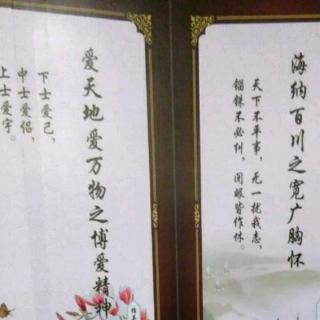 海纳百川之宽广胸怀
天下不平事，无一扰我意，
锱铢不必纠，闭眼皆作休。
爱天地爱万物之博爱精神
下士爱己，
中士爱侣，
上士爱宇。